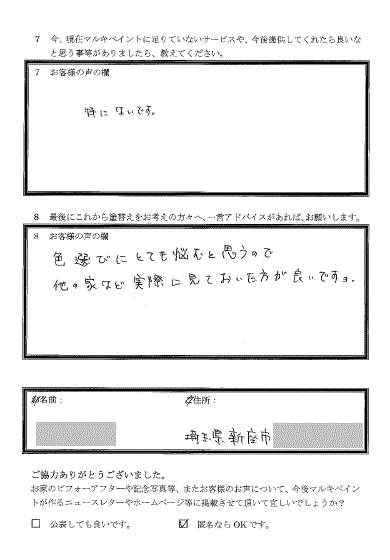 7 今、現在マルキペイントに足りていないサービスや、今後提供してくれたら良いな
と思う事等がありましたら、教えてください。
7 お客様の声の欄
特にないです。
8 最後にこれから塗替えをお考えの方々へ、一言アドバイスがあれば、お願いします。
8 お客様の声の欄
色選びにとても悩むと思うので
他の家など実際に見ておいた方が良いですョ。
お名前：
ご住所：
埼玉県新座市
ご協力ありがとうございました。
お家のビフォーアフターや記念写真等、またお客様のお声について、今後マルキペイン
トが作るニュースレターやホームページ等に掲載させて頂いて宜しいでしょうか？
□ 公表しても良いです。 ☑ 匿名ならOKです。